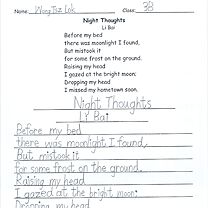 Name: Wong Tsz Lok Class: 3B
Night Thoughts
Li Bai
Before my bed
there was moonlight I found,
But mistook it
for some frost on the ground.
Raising my head
I gazed at the bright moon;
Dropping my head
I missed my hometown soon.
Night Thoughts
Li Bai
Before my bed
there was moonlight I found,
But mistook it
for some frost on the ground.
Raising my head
I gazed at the bright moon;
Dropping my head